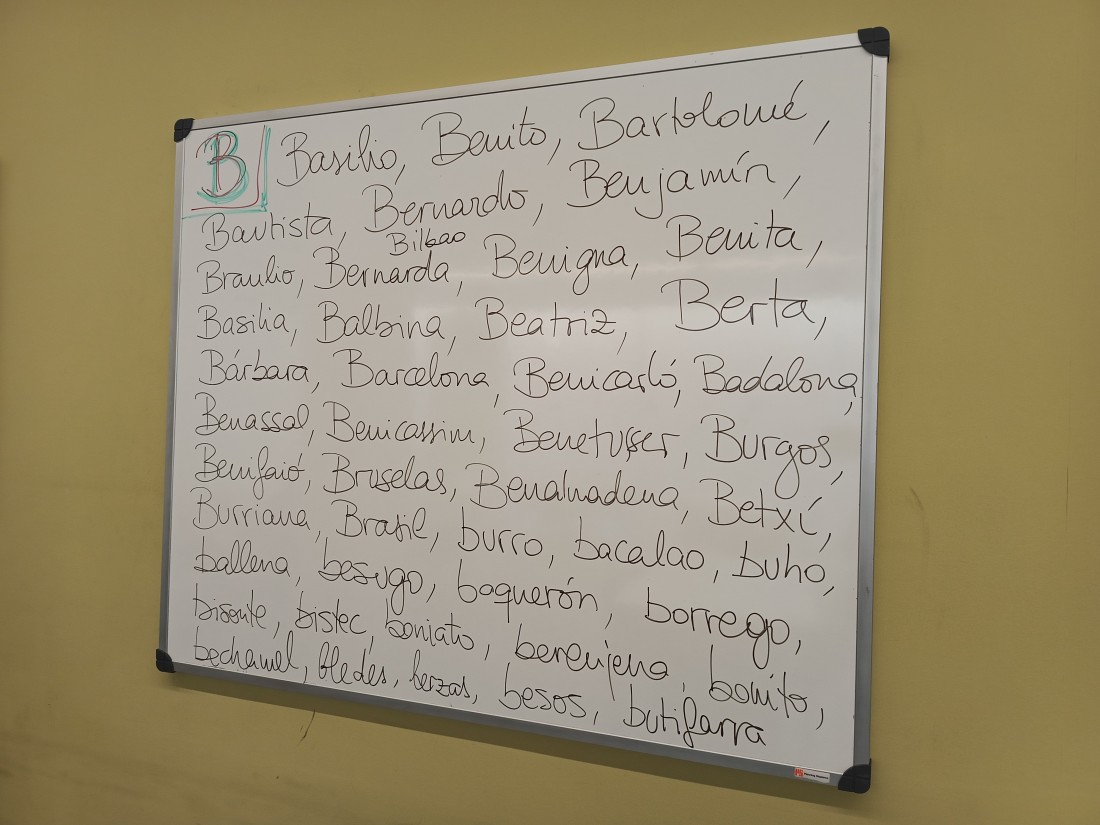 B Basilio, Benito, Bartolomé,
Bautista, Bernardo, Benjamín,
Bilbao
Braulio, Bernarda, Benigna, Benita,
Basilia, Balbina, Beatriz, Berta,
Bárbara, Barcelona, Benicarló, Badalona,
Benassal, Benicassim, Benetusser, Burgos,
Benifaió, Bruselas, Benalmadena, Betxí,
Burriana, Brasil, burro, bacalao, buho,
ballena, besugo, boquerón, borrego,
bisonte, bistec, boniato, berenjena, bonito,
bechamel, bledes, berzas, besos, butifarra